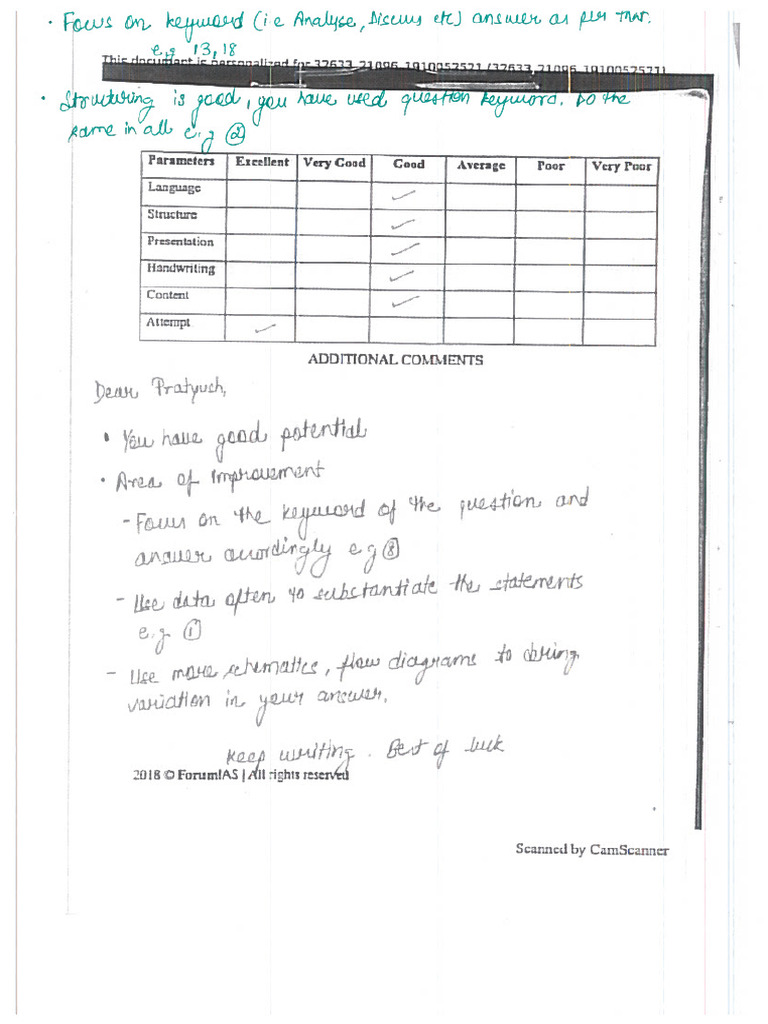 · Focus on keyword (i.e Analyse, Discuss etc) answer as per that.
e.g 13,18
This document is personalized for 37633_21096_1910052521 (37633_21096_1910052521)
· Structuring is good, you have used question keyword. Do the
same in all e.g ②
Parameters Excellent Very Good Good Average Poor Very Poor
Language ✓
Structure ✓
Presentation ✓
Handwriting ✓
Content ✓
Attempt ✓
ADDITIONAL COMMENTS
Dear Pratyush,
• You have good potential
• Area of improvement
- Focus on the keyword of the question and
answer accordingly e g ⑧
- Use data often to substantiate the statements
e.g ①
- Use more schematics, flow diagrams to bring
variation in your answer.
Keep writing. Best of luck
2018 © ForumIAS | All rights reserved
Scanned by CamScanner